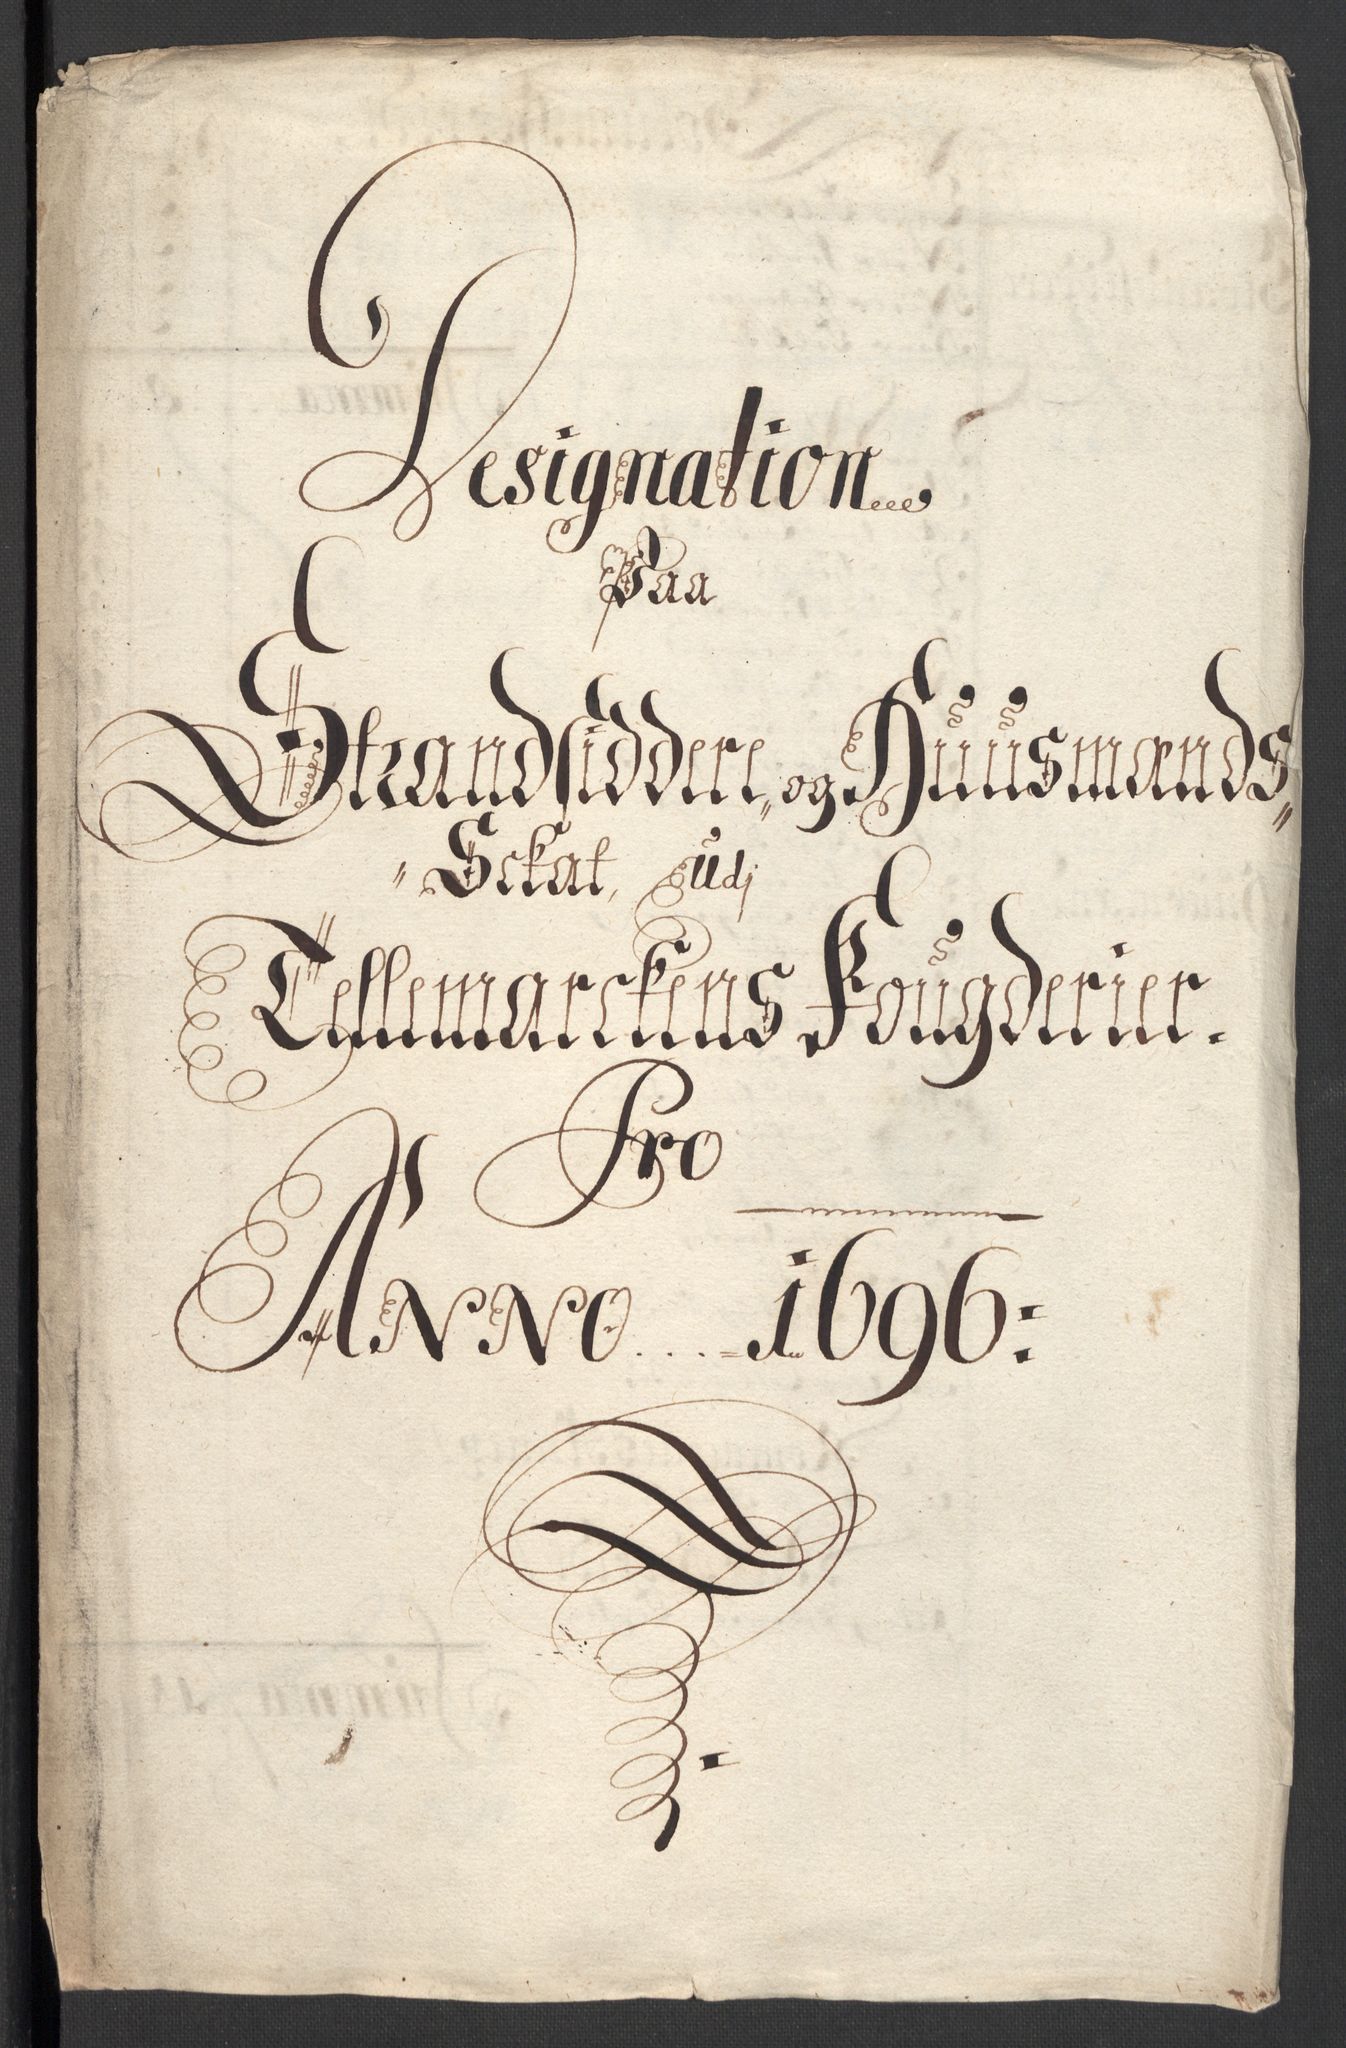 Designation
Paa
Strandsiddere, og Huusmænds
Schat, udj
Tellemarckens Fougderier.
Pro
Anno .... 1696: